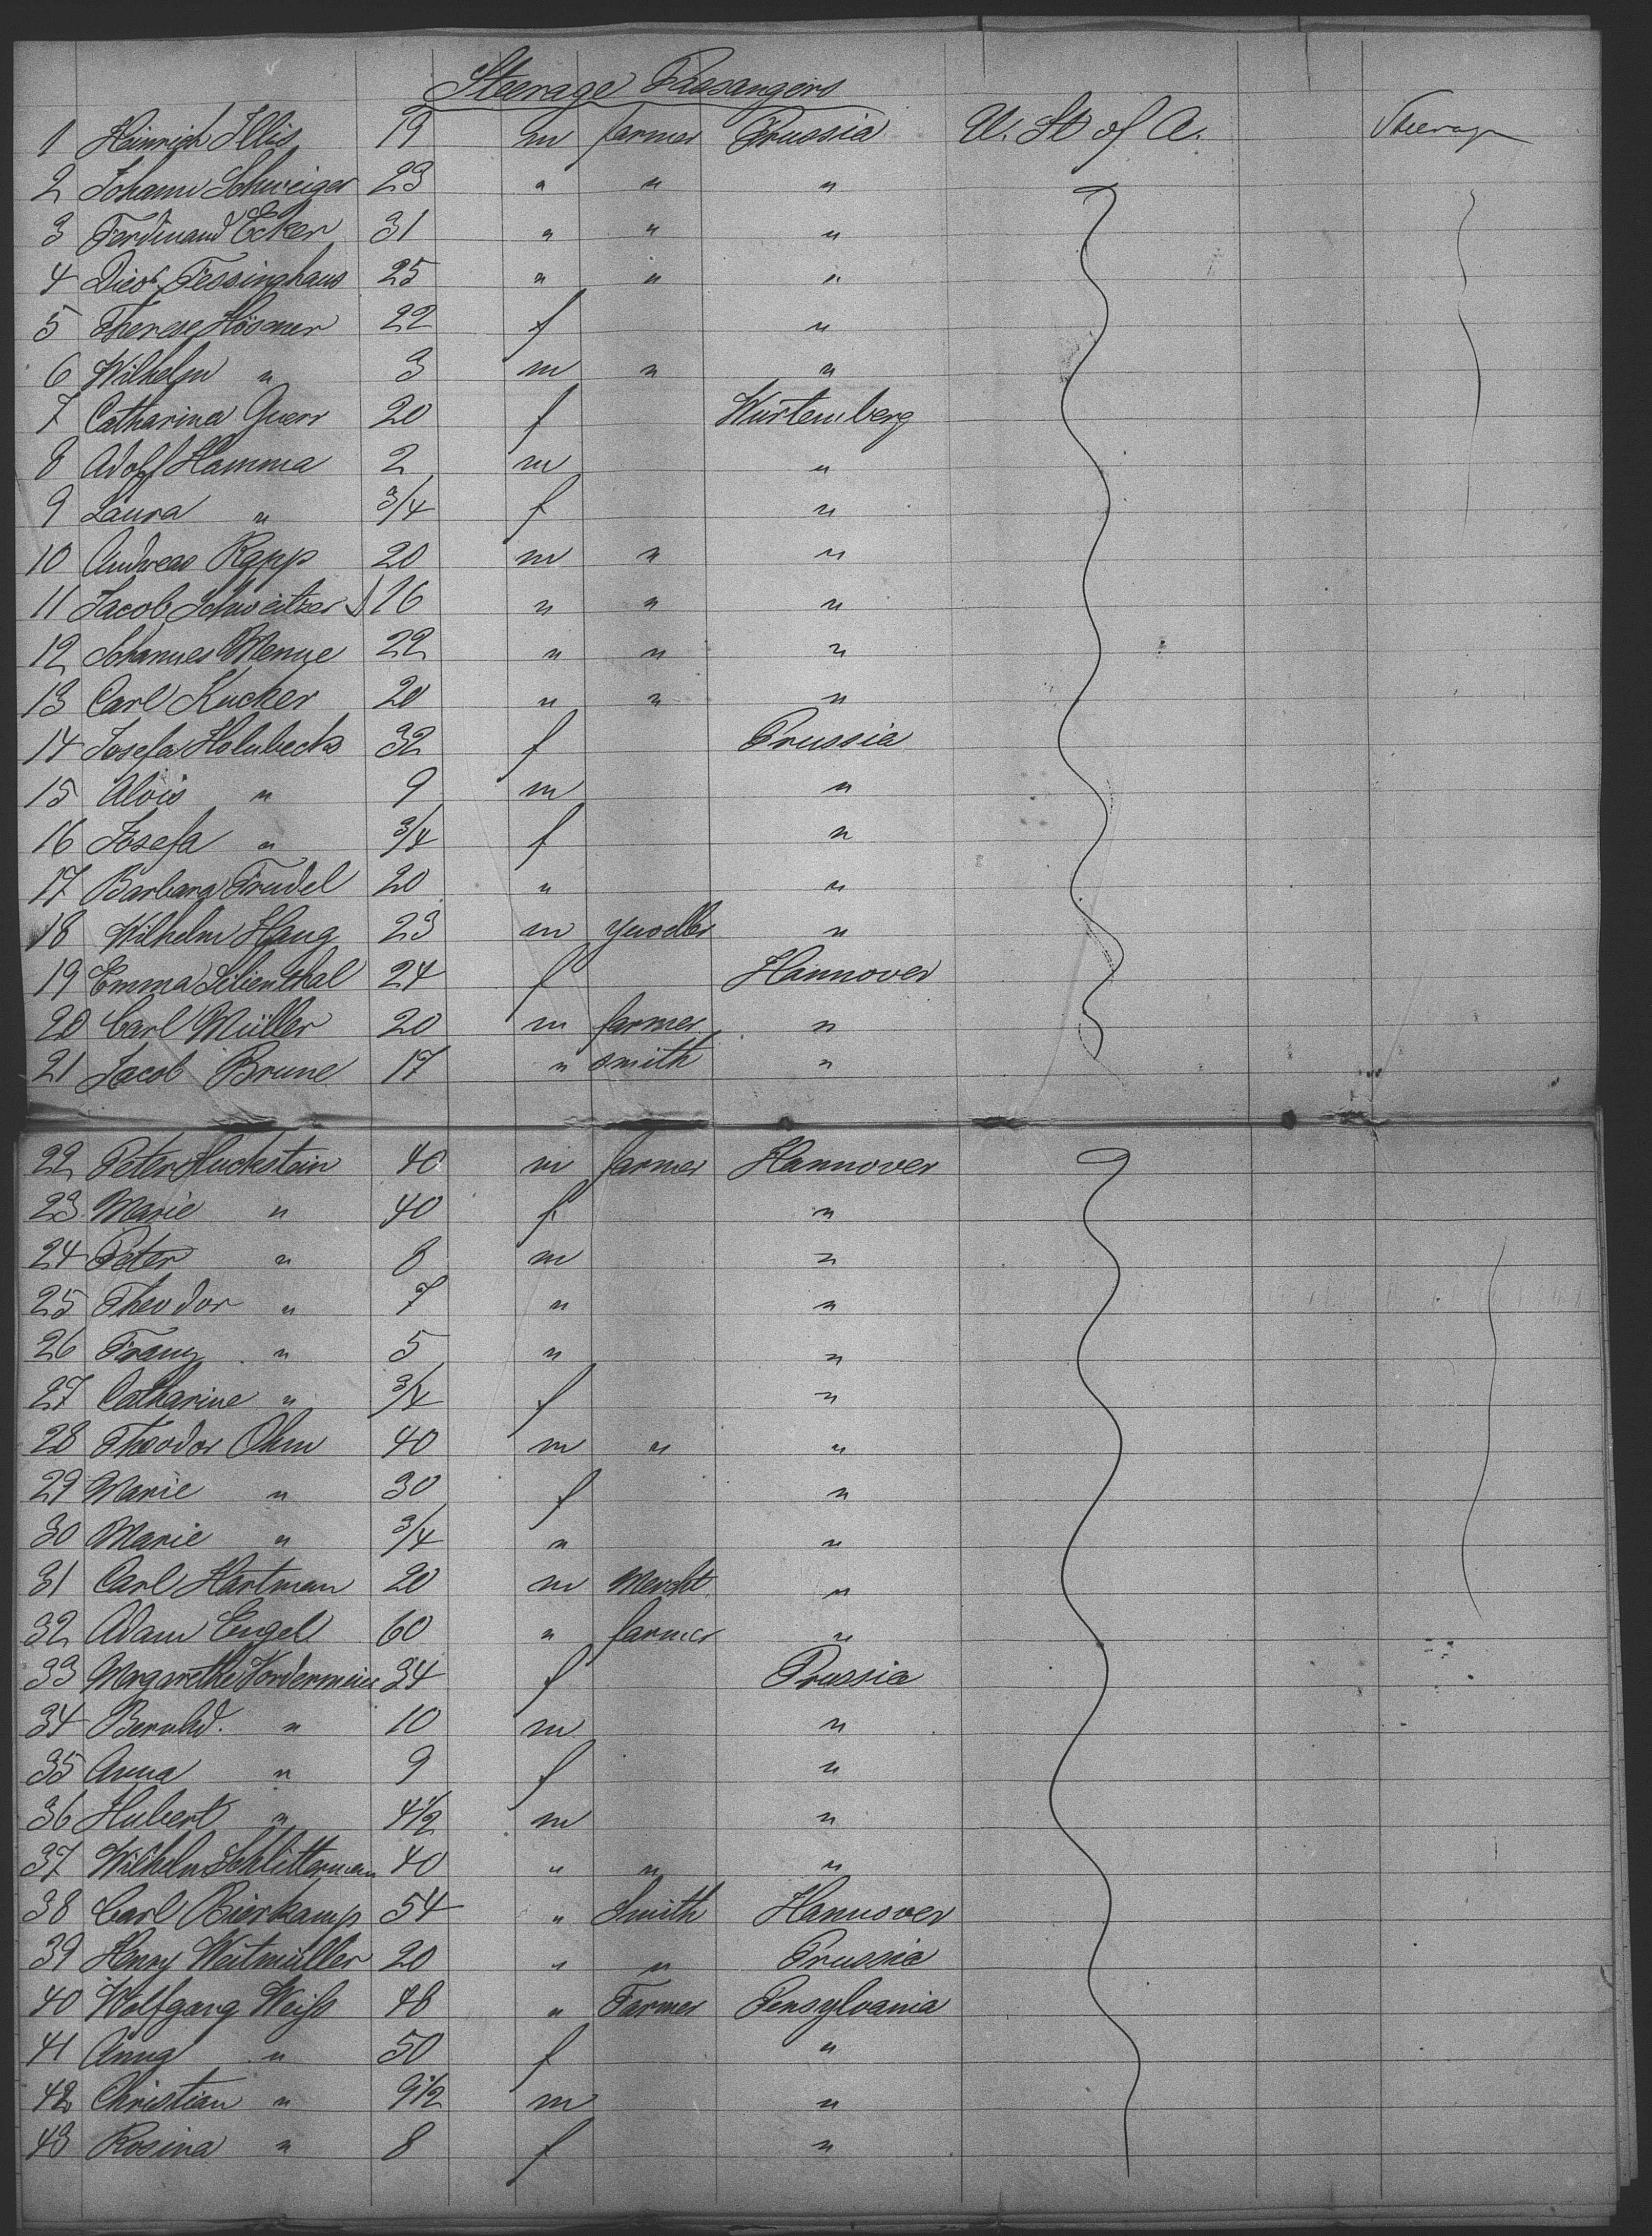 Steerage Passangers
1 Heinrich Illis 19 m farmer Prussia U. St of A. Steerage
2 Johann Schweiger 23 " " "
3 Ferdinand Ecker 31 " " "
4 Died. Fessinghaus 25 " " "
5 Therese Hösmer 22 f "
6 Wilhelm " 3 m " "
7 Catharina Querr 20 f Würtemberg
8 Adolf Hamma 2 m "
9 Laura " 3/4 f "
10 Andreas Rapp 20 m " "
11 Jacob Schweitzer 26 " " "
12 Johannes Menge 22 " " "
13 Carl Kucker 20 " " "
14 Josefa Holubecks 32 f Prussia
15 Alois " 9 m "
16 Josefa " 3/4 f "
17 Barbara Trudel 20 " "
18 Wilhelm Haug 23 m "
19 Emma Lilienthal 24 f Hannover
20 Carl Müller 20 m farmer "
21 Jacob Brune 17 " smith "
22 Peter Huckstein 40 m farmer Hannover
23 Marie " 40 f "
24 Peter " 8 m "
25 Theodor " 7 " "
26 Franz " 5 " "
27 Catharine " 3/4 f "
28 Theodor Ohm 40 m " "
29 Marie " 30 f "
30 Marie " 3/4 " "
31 Carl Hartman 20 m Mercht "
32 Adam Engel 60 " farmer "
33 Margarethe Vordermeier 34 f Prussia
34 Bernhd. " 10 m "
35 Anna " 9 f "
36 Hubert " 4 1/2 m "
37 Wilhelm Schlitterman 40 " " "
38 Carl Bierkamp 54 " Smith Hannover
39 Henry Weitmüller 20 " " Prussia
40 Wolfgang Weiß 48 " Farmer Pensylvania
41 Anna " 50 f "
42 Christian " 9 1/2 m "
43 Rosina " 8 f "